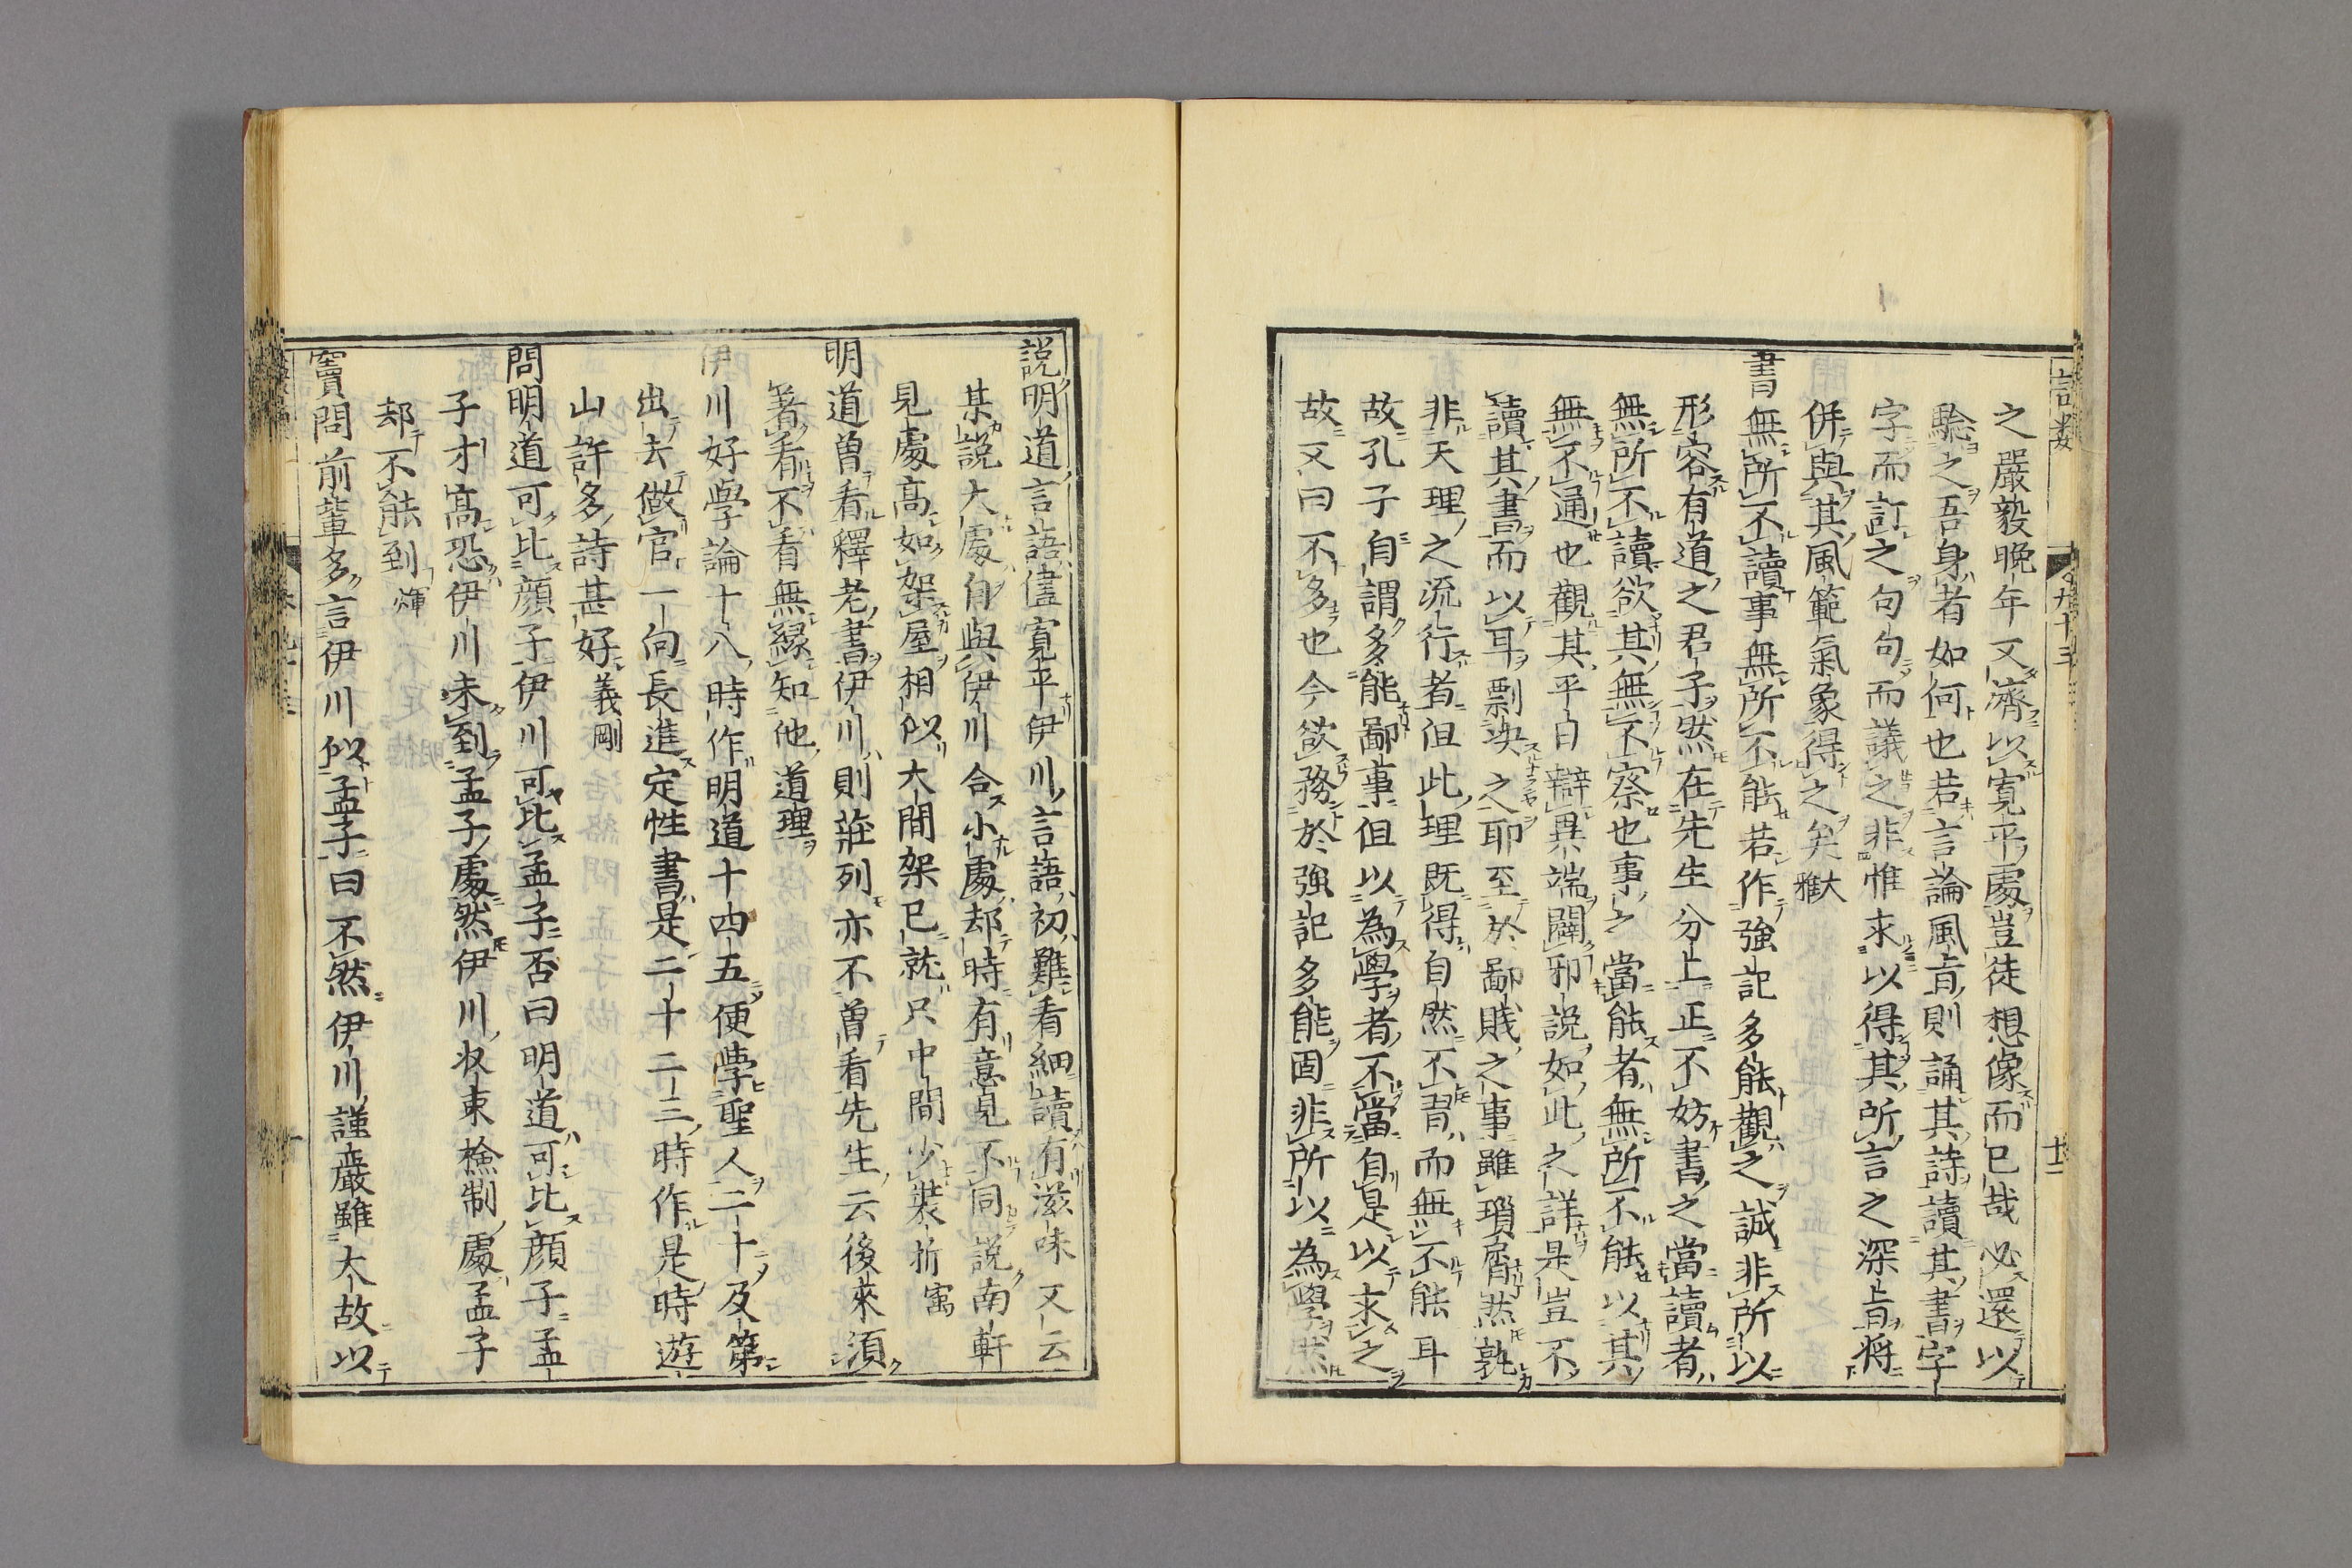 之嚴毅晚年又濟以寬平處豈徒想像而已哉必還以
驗之吾身者如何也若言論風旨則誦其詩讀其書字
字而訂之句句而議之非惟求以得其所言之深旨將
併與其風範氣象得之矣獻
書無所不讀事無所不能若作強記多能觀之誠非所以
形容有道之君子然在先生分上正不妨書之當讀者
無所不讀欲其無不察也事之當能者無所不能以其
無不通也觀其平日辯異端闢邪說如此之詳是豈不
讀其書而以耳剽决之耶至於鄙賤之事雖瑣屑然孰
非天理之流行者但此理既得自然不習而無不能耳
故孔子自謂多能鄙事但以為學者不當自是以求之
故又曰不多也今欲務於強記多能固非所以為學然
說明道言語儘寬平伊川言語初難看細讀有滋味又云
某說大處自與伊川合小處却時有意見不同說南軒
見處高如架屋相似大間架已就只中間少裝折㝢
明道曾看釋老書伊川則莊列亦不曾看先生云後來須
著看不看無緣知他道理
伊川好學論十八時作明道十四五便學聖人二十及第
出去做官一向長進定性書是二十二三時作是時遊
山許多詩甚好義剛
問明道可比顔子伊川可比孟子否曰明道可比顔子孟
子才高恐伊川未到孟子處然伊川收束檢制處孟子
却不能到煇
竇問前輩多言伊川似孟子曰不然伊川謹嚴雖大故以